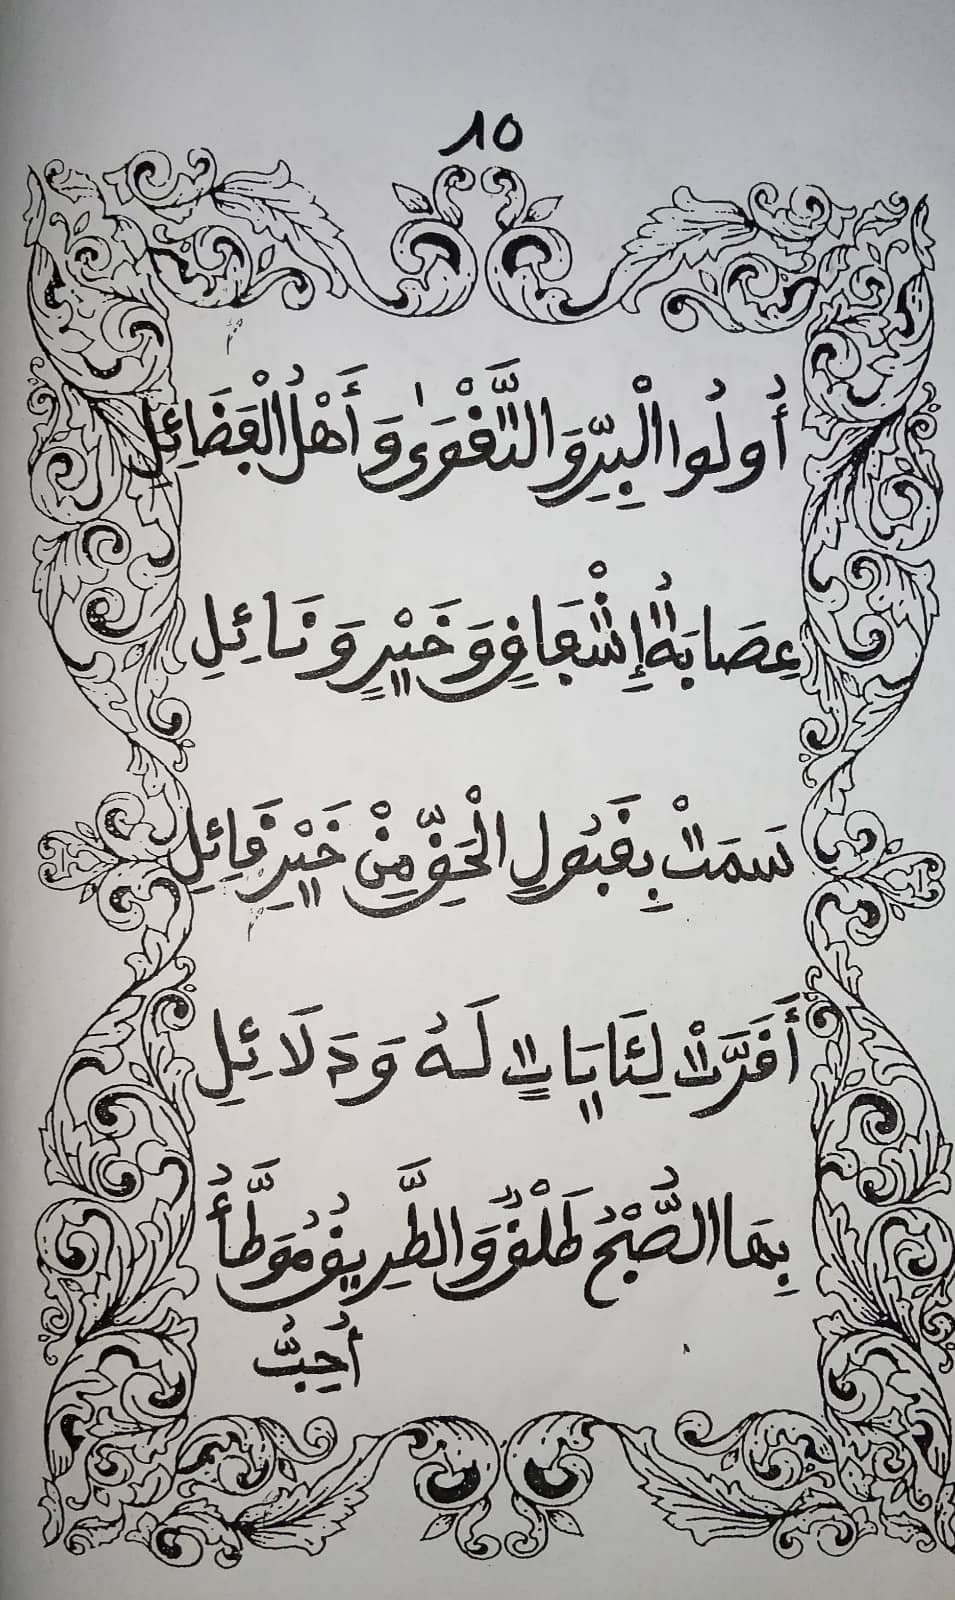 ٨٥
أُولُوا الْبِرِّ وَالتَّقْوَىٰ وَأَهْلُ الْفَضَائِلِ
عِصَابَةُ إِشْفَاقٍ وَخَيْرٍ وَنَائِلِ
سَمَتْ بِقَبُولِ الْحَقِّ مِنْ خَيْرِ قَائِلِ
أَقَرَّتْ لِئَايَاتٍ لَهُ وَدَلَائِلِ
بِهَا الصُّبْحُ طَلْقٌ وَالطَّرِيقُ مُوَطَّأُ
أُحِبُّ